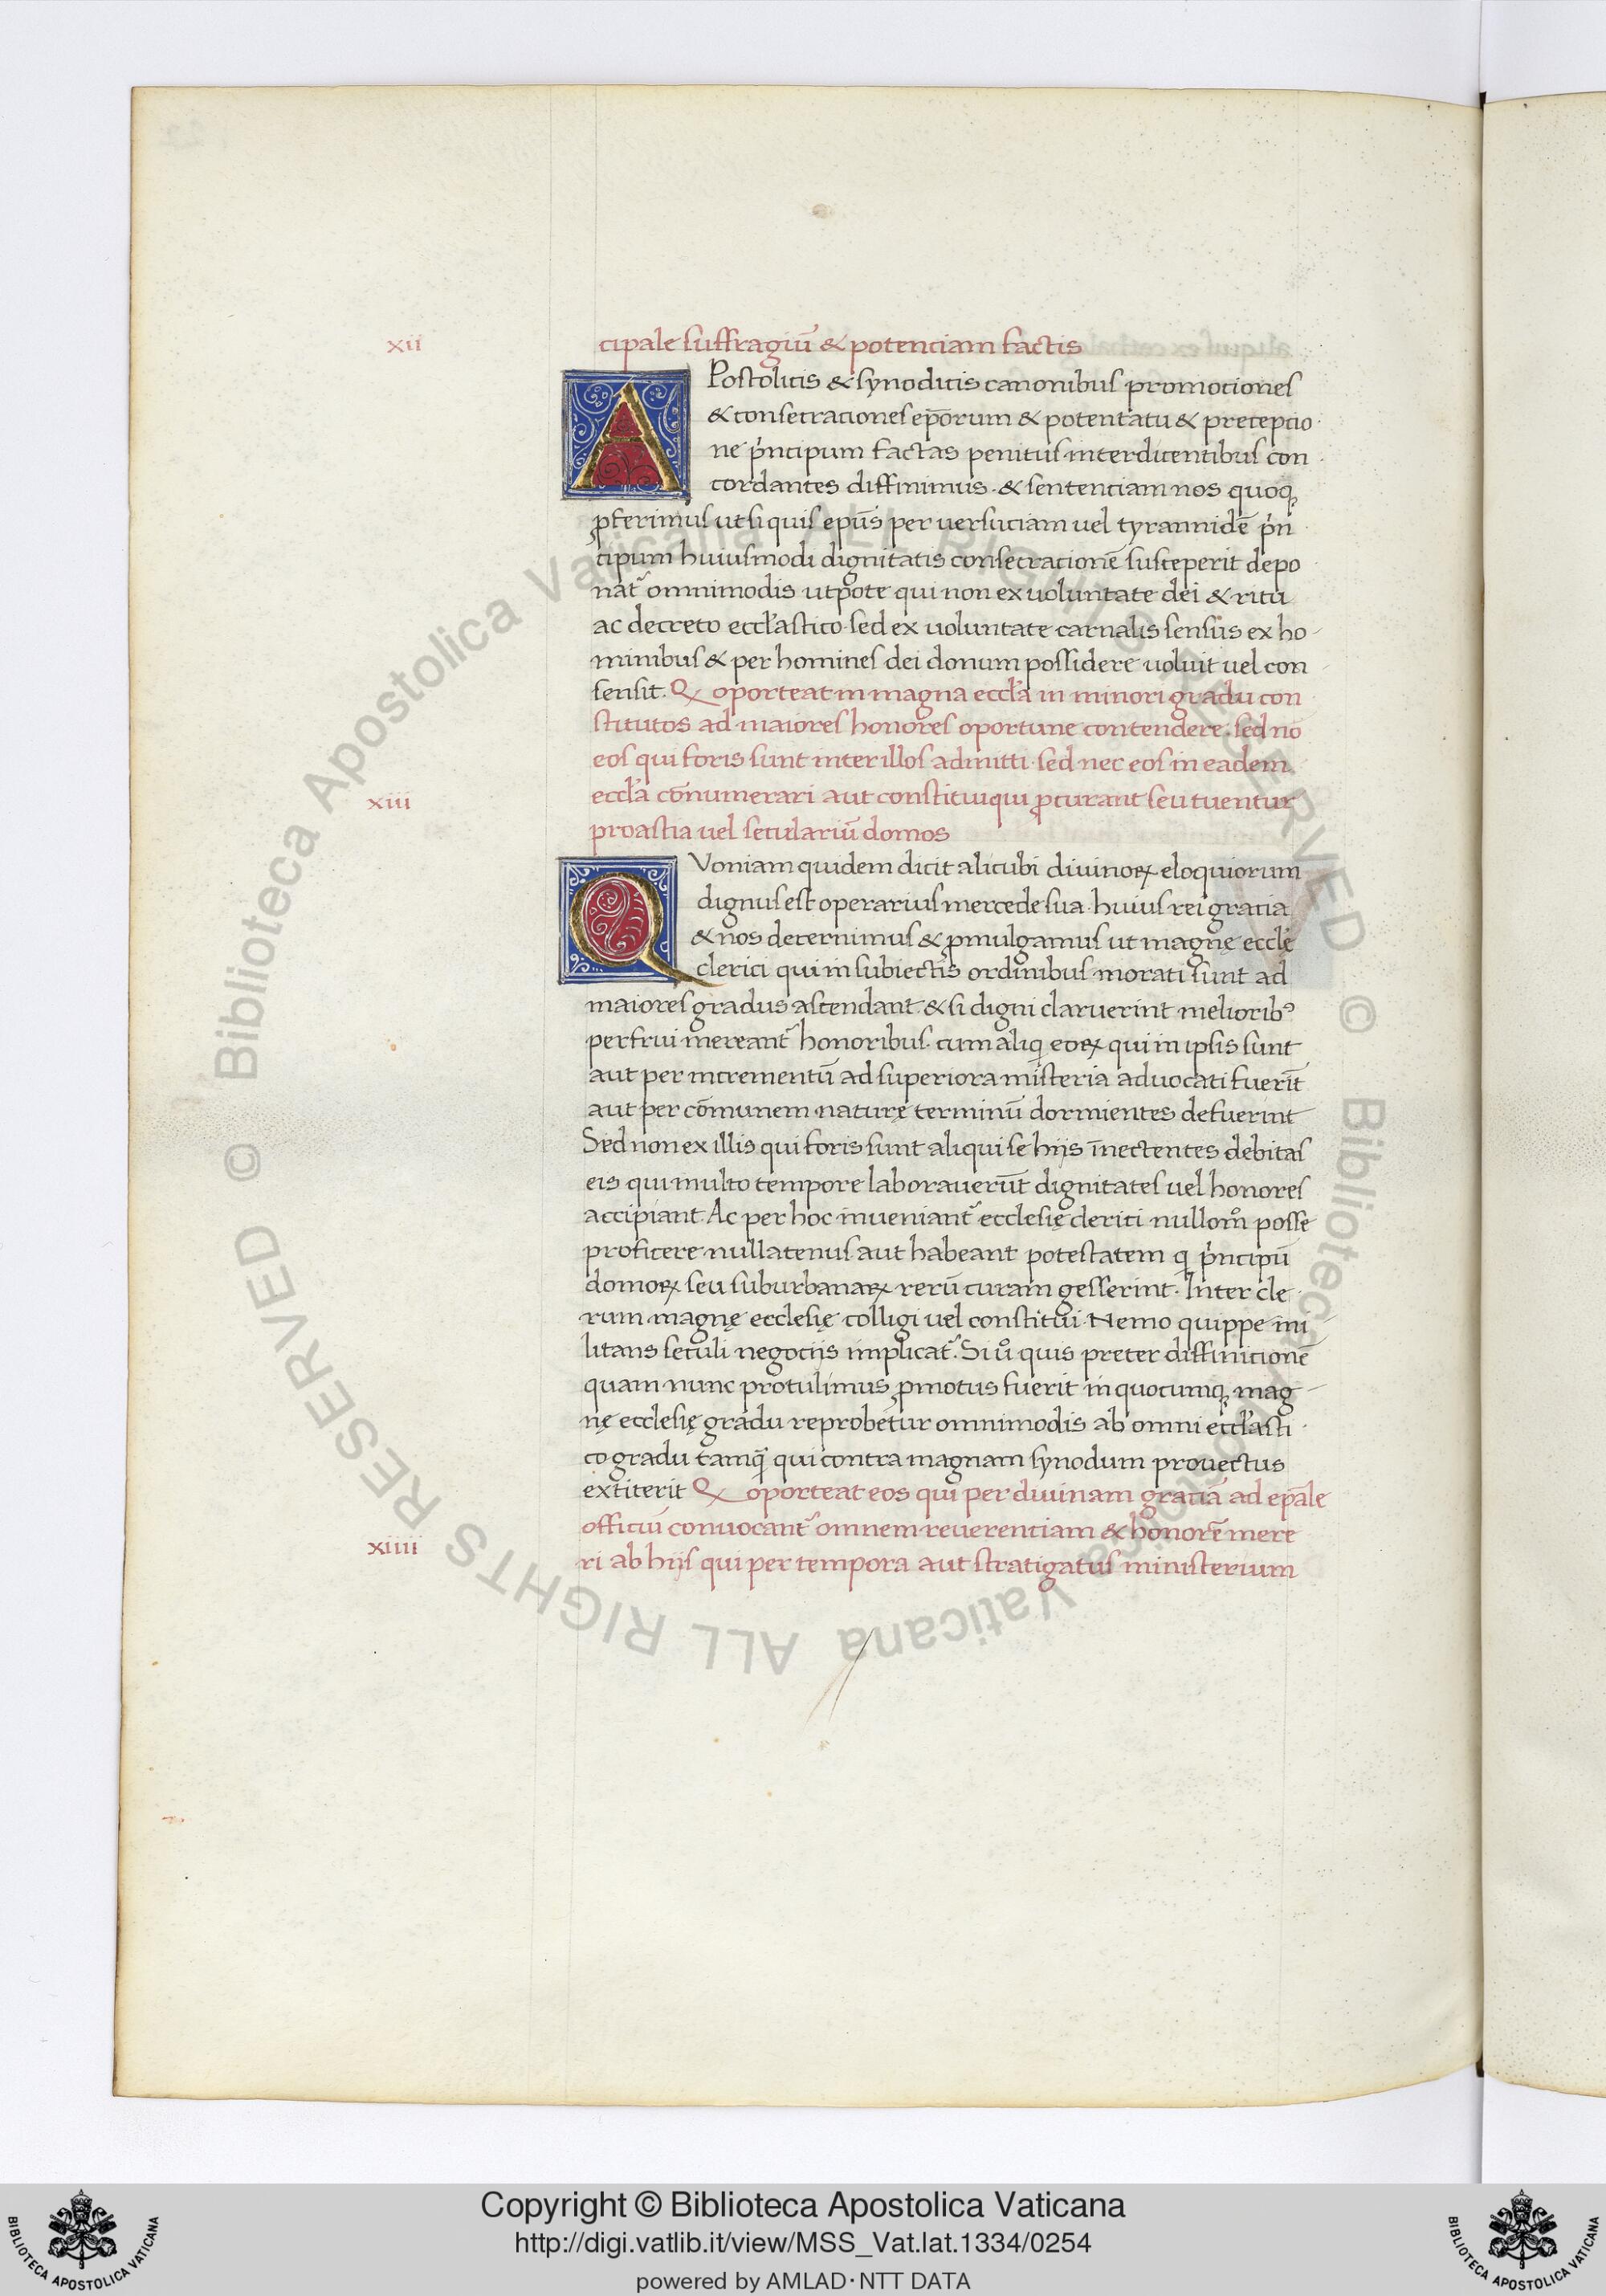 xii
cipale suffragiū & potenciam factis
APostolicis & synodicis canonibus promociones
& consecraciones ep̄orum & potentatu & precepcio
ne pⁱncipum factas penitus interdicentibus con
cordantes diffinimus. & sentenciam nos quoqꝫ
ꝓferimus ut si quis ep̄us per uersuciam uel tyrannidē pⁱn
cipum huiusmodi dignitatis consecracionē susceperit depo
nat᷑ omnimodis utpote qui non ex uoluntate dei & ritu
ac decreto eccl̄astico sed ex uoluntate carnalis sensus ex ho
minibus & per homines dei donum possidere uoluit uel con
sensit. Qꝫ oporteat in magna eccl̄a in minori gradu con
stitutos ad maiores honores oportune contendere. sed nō
eos qui foris sunt inter illos admitti sed nec eos in eadem
xiii
eccl̄a cōnumerari aut constitui qui ꝓcurant seu tuentur
proastia uel seculariū domos
QVoniam quidem dicit alicubi diuinoꝝ eloquiorum
dignus est operarius mercede sua. huius rei gracia
& nos decernimus & ꝓmulgamus ut magnę eccl̄ę
clerici qui in subiectis ordinibus morati sunt ad
maiores gradus ascendant. & si digni claruerint meliorib⁹
perfrui mereant᷑ honoribus. cum aliqi eoꝝ qui in ipsis sunt
aut per incrementū ad superiora misteria aduocati fuerīt
aut per cōmunem naturę terminū dormientes defuerint
Sed non ex illis qui foris sunt aliqui se hijs īnectentes debitas
eis qui multo tempore laborauerūt dignitates uel honores
accipiant. Ac per hoc inueniant᷑ ecclesię clerici nullomͦ posse
proficere. nullatenus aut habeant potestatem qi pⁱncipū
domoꝝ seu suburbanaꝝ rerū curam gesserint. Inter cle
rum magnę ecclesię colligi uel constitui. Nemo quippe mi
litans seculi negociis implicat᷑. Si uͦ quis preter diffinicionē
quam nunc protulimus ꝓmotus fuerit in quocumqꝫ mag
nę ecclesię gradu reprobetur omnimodis ab omni eccl̄asti
co gradu tamq̄ qui contra magnam synodum prouectus
extiterit Qꝫ oporteat eos qui per diuinam graciā ad ep̄ale
officiū conuocant᷑ omnem reuerenciam & honorē mere
xiiii
ri ab hijs qui per tempora aut stratigatus ministerium
© Biblioteca Apostolica Vaticana ALL RIGHTS RESERVED © Biblioteca Apostolica Vaticana ALL RIGHTS RESERVED
Copyright © Biblioteca Apostolica Vaticana
http://digi.vatlib.it/view/MSS_Vat.lat.1334/0254
powered by AMLAD·NTT DATA
BIBLIOTECA APOSTOLICA VATICANA
BIBLIOTECA APOSTOLICA VATICANA